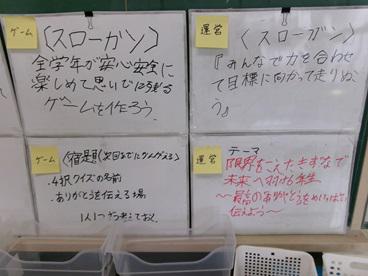 ゲーム
(スローガン)
全学年が安心安全に
楽しめて思い出に残る
ゲームを作ろう
運営
〈スローガン〉
『みんなで力を合わせ
て目標に向かって走りぬこ
う』
ゲーム
(宿題(次回までにかんがえる)
・4択クイズの名前
・ありがとうを伝える場
1人1つ考えておく
運営
テーマ
限界をこえたきずなで
未来へ羽ばたけ
～最高のありがとうを
伝えよう～